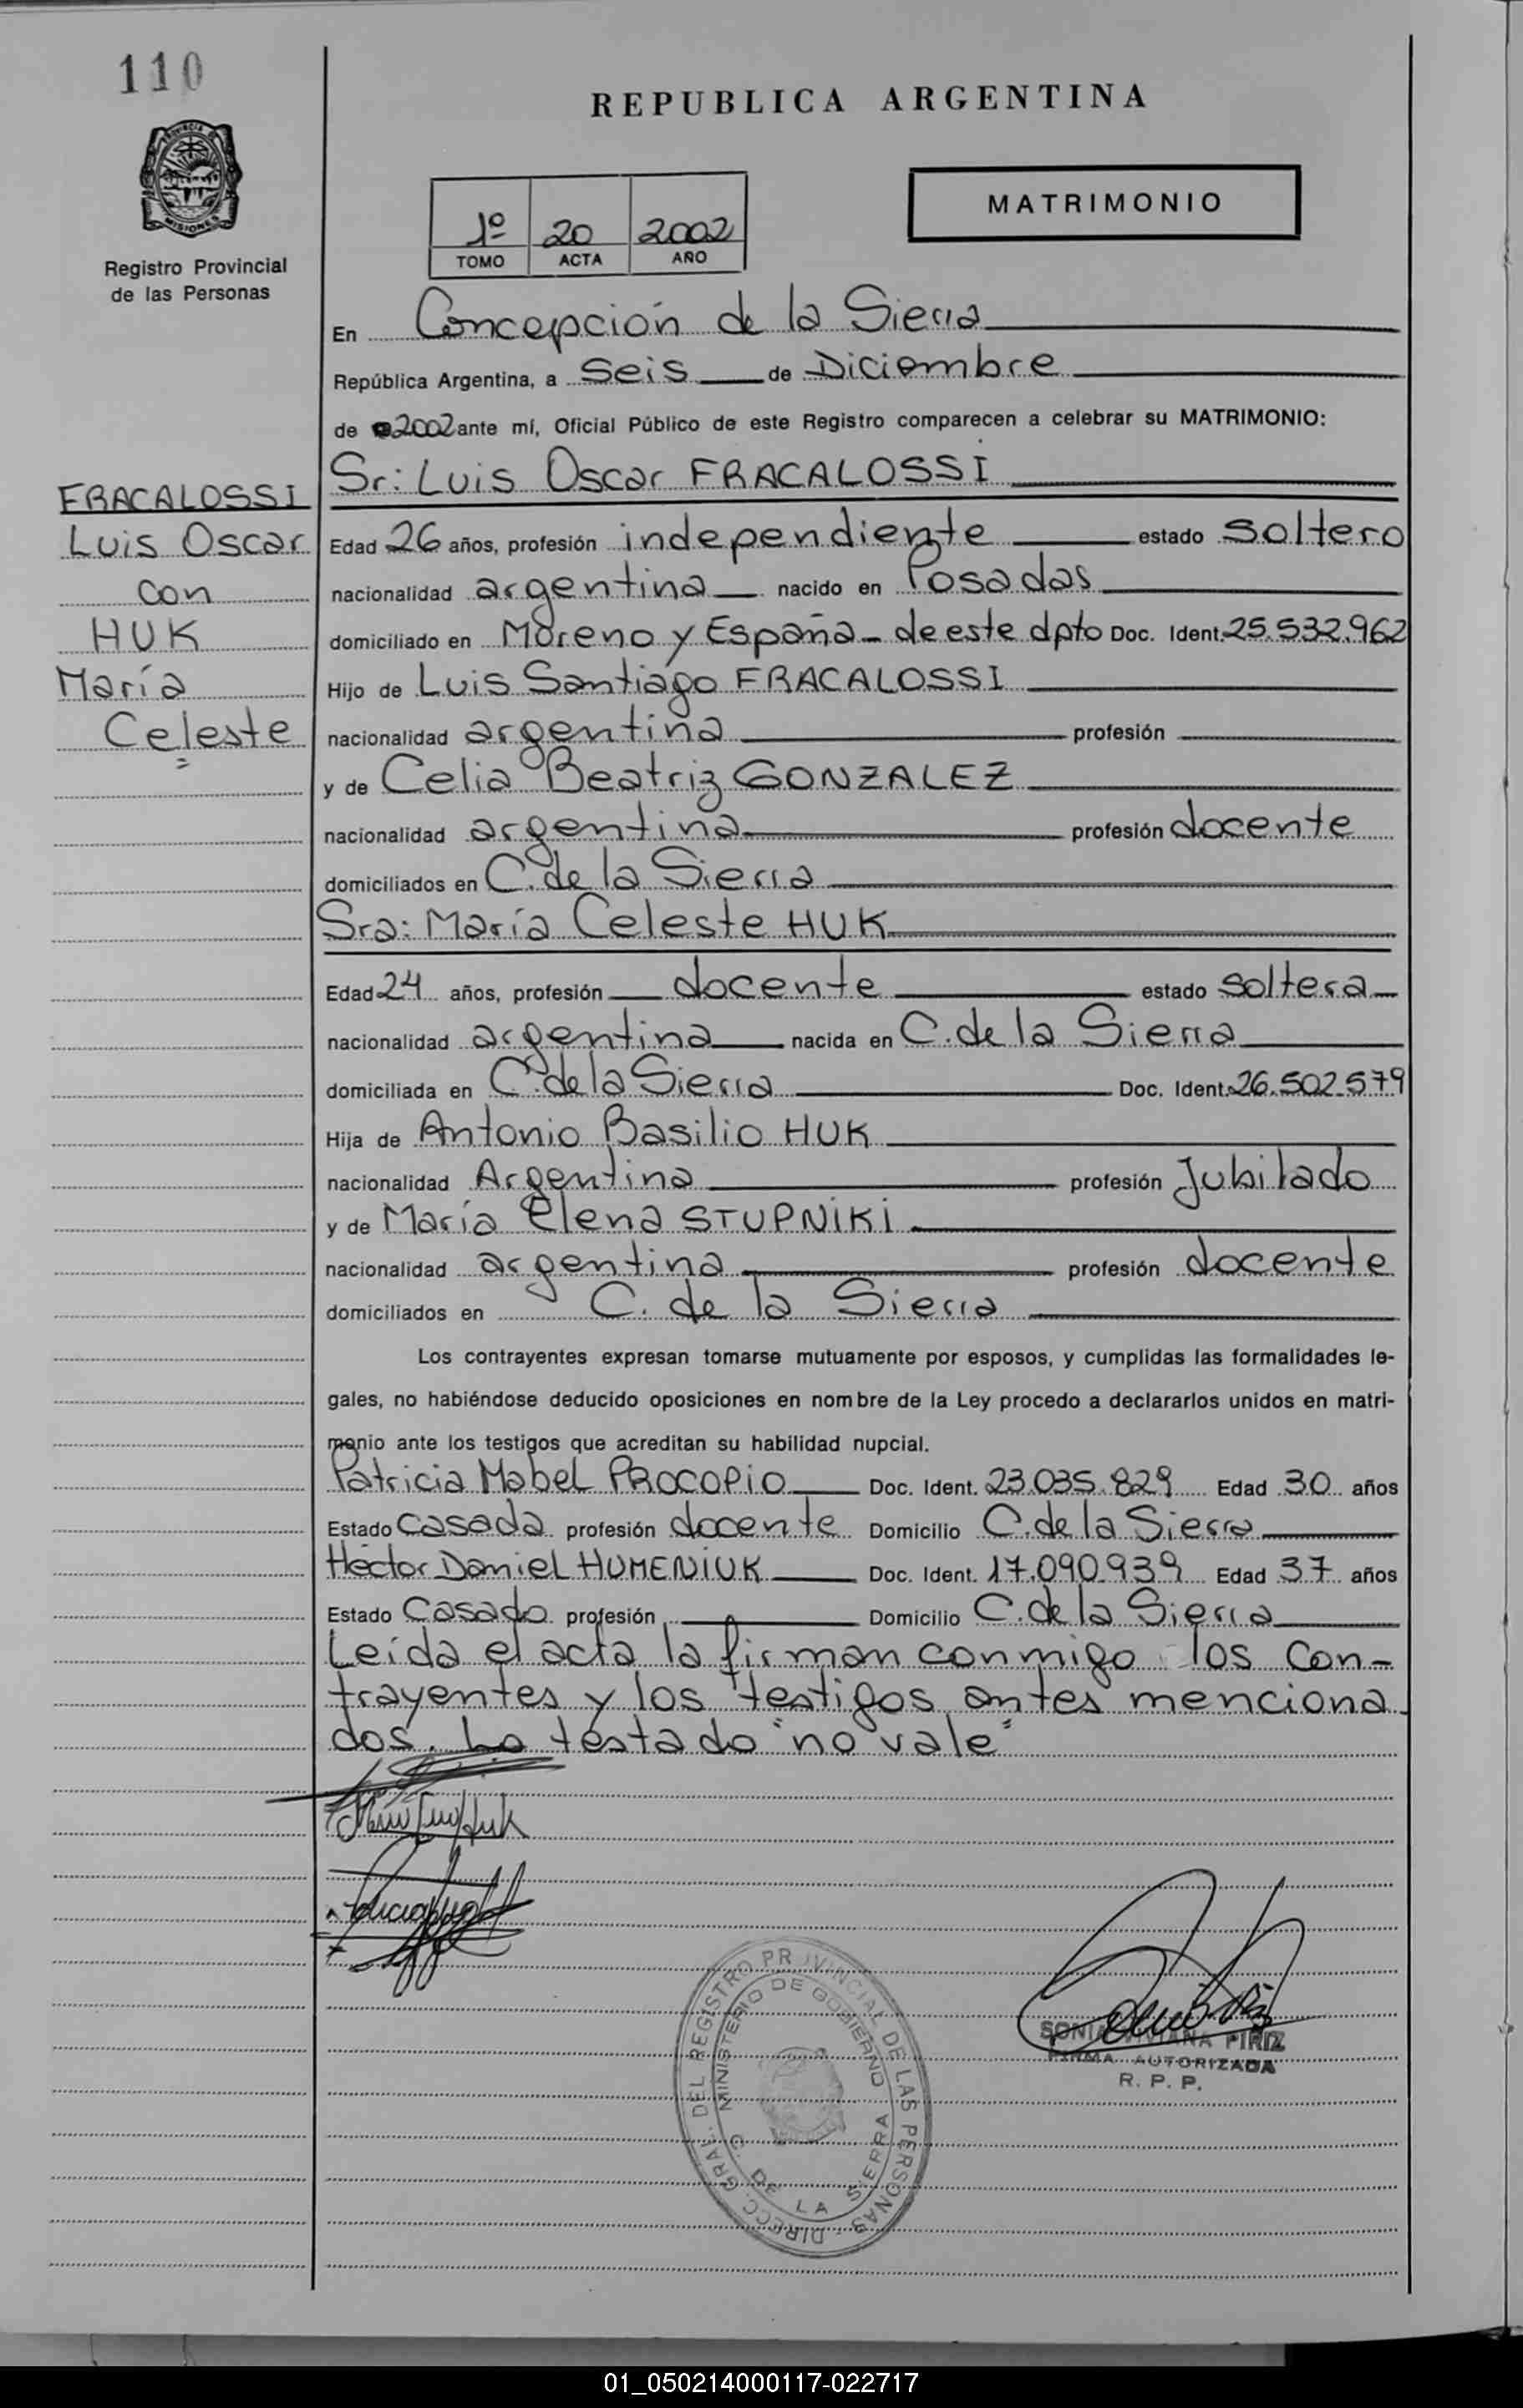 110
REPUBLICA ARGENTINA
PROVINCIA DE
MISIONES
Registro Provincial
de las Personas
1º 20 2002
TOMO ACTA AÑO
MATRIMONIO
En Concepción de la Sierra
República Argentina, a Seis de Diciembre
de 2002 ante mí, Oficial Público de este Registro comparecen a celebrar su MATRIMONIO:
FRACALOSSI
Luis Oscar
con
HUK
María
Celeste
Sr: Luis Oscar FRACALOSSI
Edad 26 años, profesión independiente estado soltero
nacionalidad argentina nacido en Posadas
domiciliado en Moreno y España - de este dpto Doc. Ident. 25.532.962
Hijo de Luis Santiago FRACALOSSI
nacionalidad argentina profesión
y de Celia Beatriz GONZALEZ
nacionalidad argentina profesión docente
domiciliados en C. de la Sierra
Sra: María Celeste HUK
Edad 24 años, profesión docente estado soltera
nacionalidad argentina nacida en C. de la Sierra
domiciliada en C. de la Sierra Doc. Ident. 26.502.579
Hija de Antonio Basilio HUK
nacionalidad Argentina profesión Jubilado
y de María Elena STUPNIKI
nacionalidad argentina profesión docente
domiciliados en C. de la Sierra
Los contrayentes expresan tomarse mutuamente por esposos, y cumplidas las formalidades le-
gales, no habiéndose deducido oposiciones en nombre de la Ley procedo a declararlos unidos en matri-
monio ante los testigos que acreditan su habilidad nupcial.
Patricia Mabel PROCOPIO Doc. Ident. 23.035.829 Edad 30 años
Estado Casada profesión docente Domicilio C. de la Sierra
Héctor Daniel HUMENIUK Doc. Ident. 17.090.939 Edad 37 años
Estado Casado profesión Domicilio C. de la Sierra
Leída el acta la firman conmigo los con-
trayentes y los testigos antes menciona
dos. Lo testado "no vale"
DIRECC. GRAL. DEL REGISTRO PROVINCIAL DE LAS PERSONAS
MINISTERIO DE GOBIERNO
C. DE LA SIERRA
SONIA PIRIZ
FIRMA AUTORIZADA
R. P. P.
01_050214000117-022717